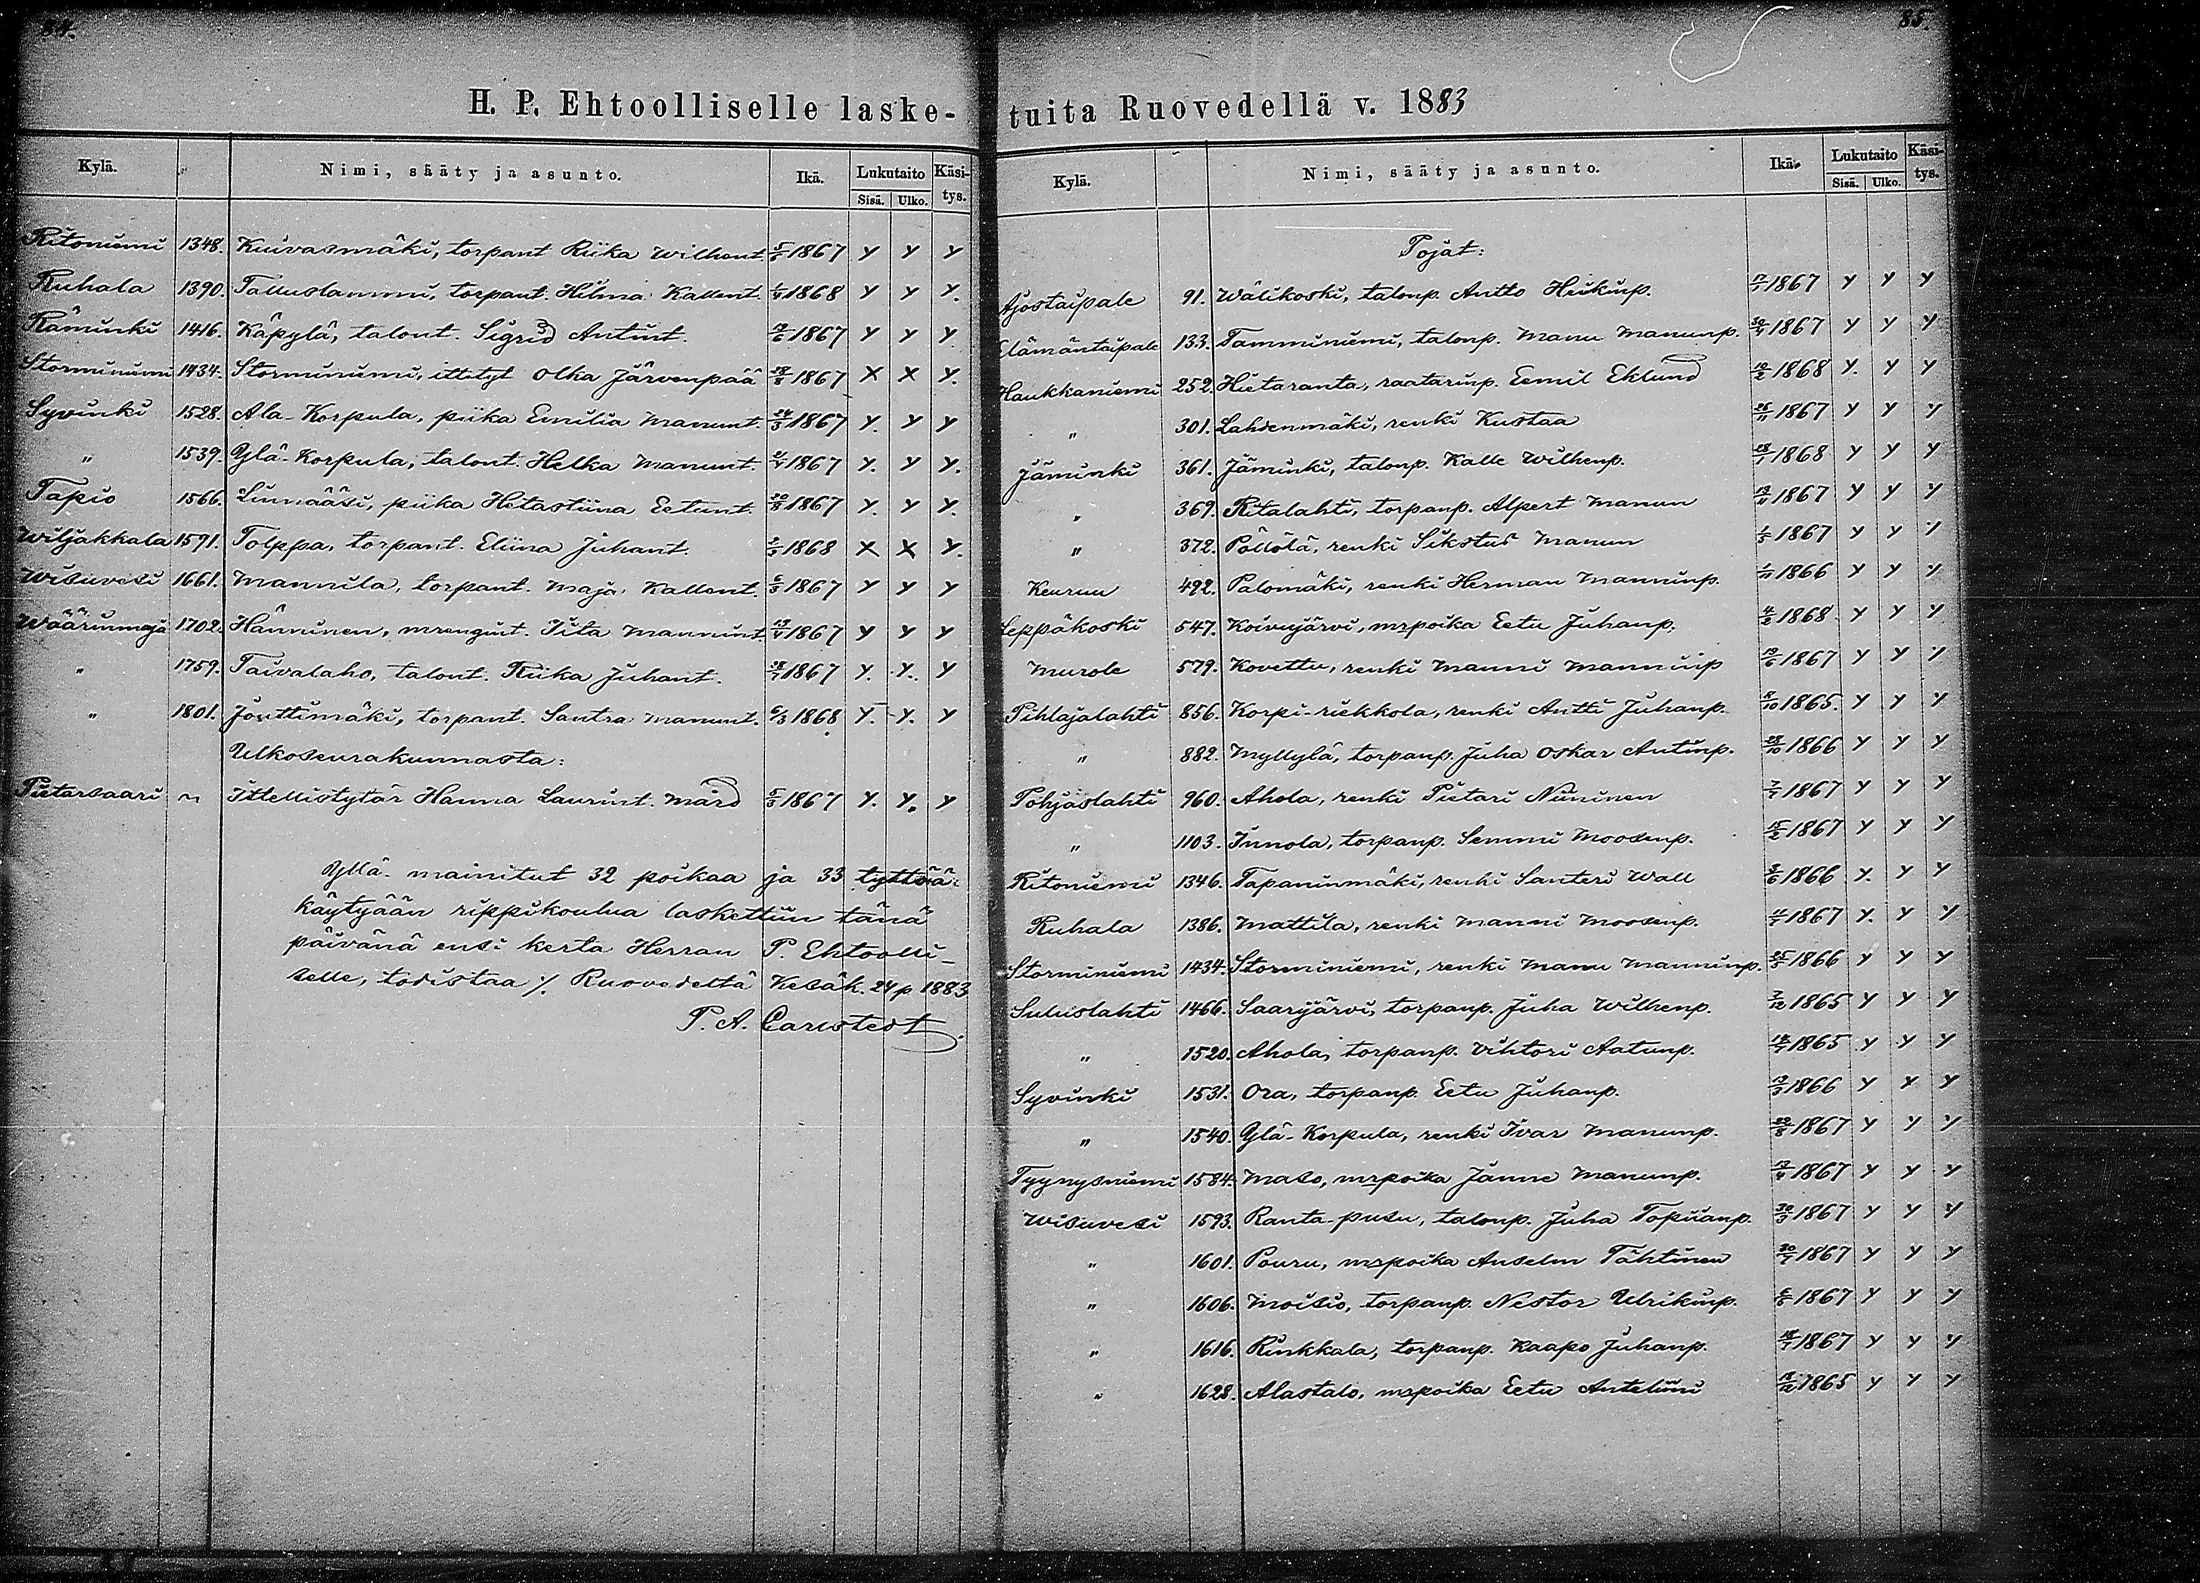 84.
H. P. Ehtoolliselle laske-
Kylä. Nimi, sääty ja asunto. Ikä. Lukutaito Käsi-
Sisä. Ulko. tys.
Ritoniemi 1348. Kuivasmäki, torpant Riika Wilhent. 1867 y y y
Ruhala 1390. Talluslammi, torpant. Hilma Kallent. 1868 y y y.
Räminki 1416. Käpylä, talont. Sigrid Antint. 1867 y y y
Storminiemi 1434. Storminiemi, ittityt Olka Järvenpää 1867 x x y.
Syvinki 1528. Ala-Korpula, piika Emilia Manunt. 24/3 1867 y. y y
" 1539. Ylä-Korpula, talont. Helka Manunt. 1867 y. y y.
Tapio 1566. Linnaäsi, piika Hetastiina Eetunt. 1867 y. y y.
Wiljakkala 1591. Tolppa, torpant. Eliina Juhant. 1868 x x y.
Wisuvesi 1661. Mannila, torpant. Maja Kallent. 1867 y y y
Wäärinmaja 1702. Hänninen, mrengint. Iita Mannint. 1867 y y y
" 1759. Taivalaho, talont. Riika Juhant. 1867 y. y. y
" 1801. Jouttimäki, torpant. Santra Manunt. 6/3 1868 y. y. y
Ulkoseurakunnasta:
Pietarsaari Ittellistytär Hanna Laurint. Mård 1867 y. y. y
Yllä-mainitut 32 poikaa ja 33 tyttöä
käytyään rippikoulua laskettiin tänä
päivänä ensi kerta Herran P. Ehtoolli-
selle, todistaa ⁒ Ruovedeltä Kesäk. 24 p 1883
P. A. Carlstedt.
85.
tuita Ruovedellä v. 1883
Kylä. Nimi, sääty ja asunto. Ikä. Lukutaito Käsi-
Sisä. Ulko. tys.
Pojat:
Ajostaipale 91. Wälikoski, talonp. Antto Heikinp. 17/1 1867 y y y
Elämäntaipale 133. Tamminiemi, talonp. Manu Manunp. 1867 y y y
Haukkaniemi 252. Hietaranta, raatarinp. Eemil Eklund 1868 y. y y
" 301. Lahdenmäki, renki Kustaa 26/11 1867 y y y
Jäminki 361. Jäminki, talonp. Kalle Wilhenp. 1868 y y y
" 369. Ritalahti, torpanp. Alpert Manun 13/11 1867 y y y
" 372. Pöllölä, renki Sikstus Manun 1867 y y y
Keuruu 492. Palomäki, renki Herman Manninp. 1866 y y y
Leppäkoski 547. Koivujärvi, mrpoika Eetu Juhanp. 1868 y y y
Murole 579. Kovettu, renki Manni Manninp 1867 y y y
Pihlajalahti 856. Korpi-riekkola, renki Antti Juhanp. 1865. y y y
" 882. Myllylä, torpanp. Juha Oskar Antinp. 1866 y y y
Pohjaslahti 960. Ahola, renki Pietari Niininen 1867 y y y
" 1103. Innola, torpanp. Semmi Moosenp. 1867 y y y
Ritoniemi 1346. Tapaninmäki, renki Santeri Wall 1866 y. y y
Ruhala 1386. Mattila, renki Manni Moosenp. 1867 y. y y
Storminiemi 1434. Storminiemi, renki Manu Manninp. 1866 y y y
Suluslahti 1466. Saarijärvi, torpanp. Juha Wilhenp. 1865 y y y
" 1520. Ahola, torpanp. Vihtori Aatunp. 1865 y y y
Syvinki 1531. Ora, torpanp. Eetu Juhanp. 1866 y y y
" 1540. Ylä-Korpula, renki Ivar Manunp. 1867 y y y
Tyynysniemi 1584. Maso, mrpoika Janne Manunp. 1867 y y y
Wisuvesi 1593. Ranta-pusu, talonp. Juha Topiianp. 30/3 1867 y y y
" 1601. Pouru, mrpoika Anselm Tähtinen 1867 y y y
" 1606. Moisio, torpanp. Nestor Ulrikinp. 1867 y y y
" 1616. Rinkkala, torpanp. Kaapo Juhanp. 1867 y y y
" 1628. Alastalo, mrpoika Eetu Anteliini 1865 y y y